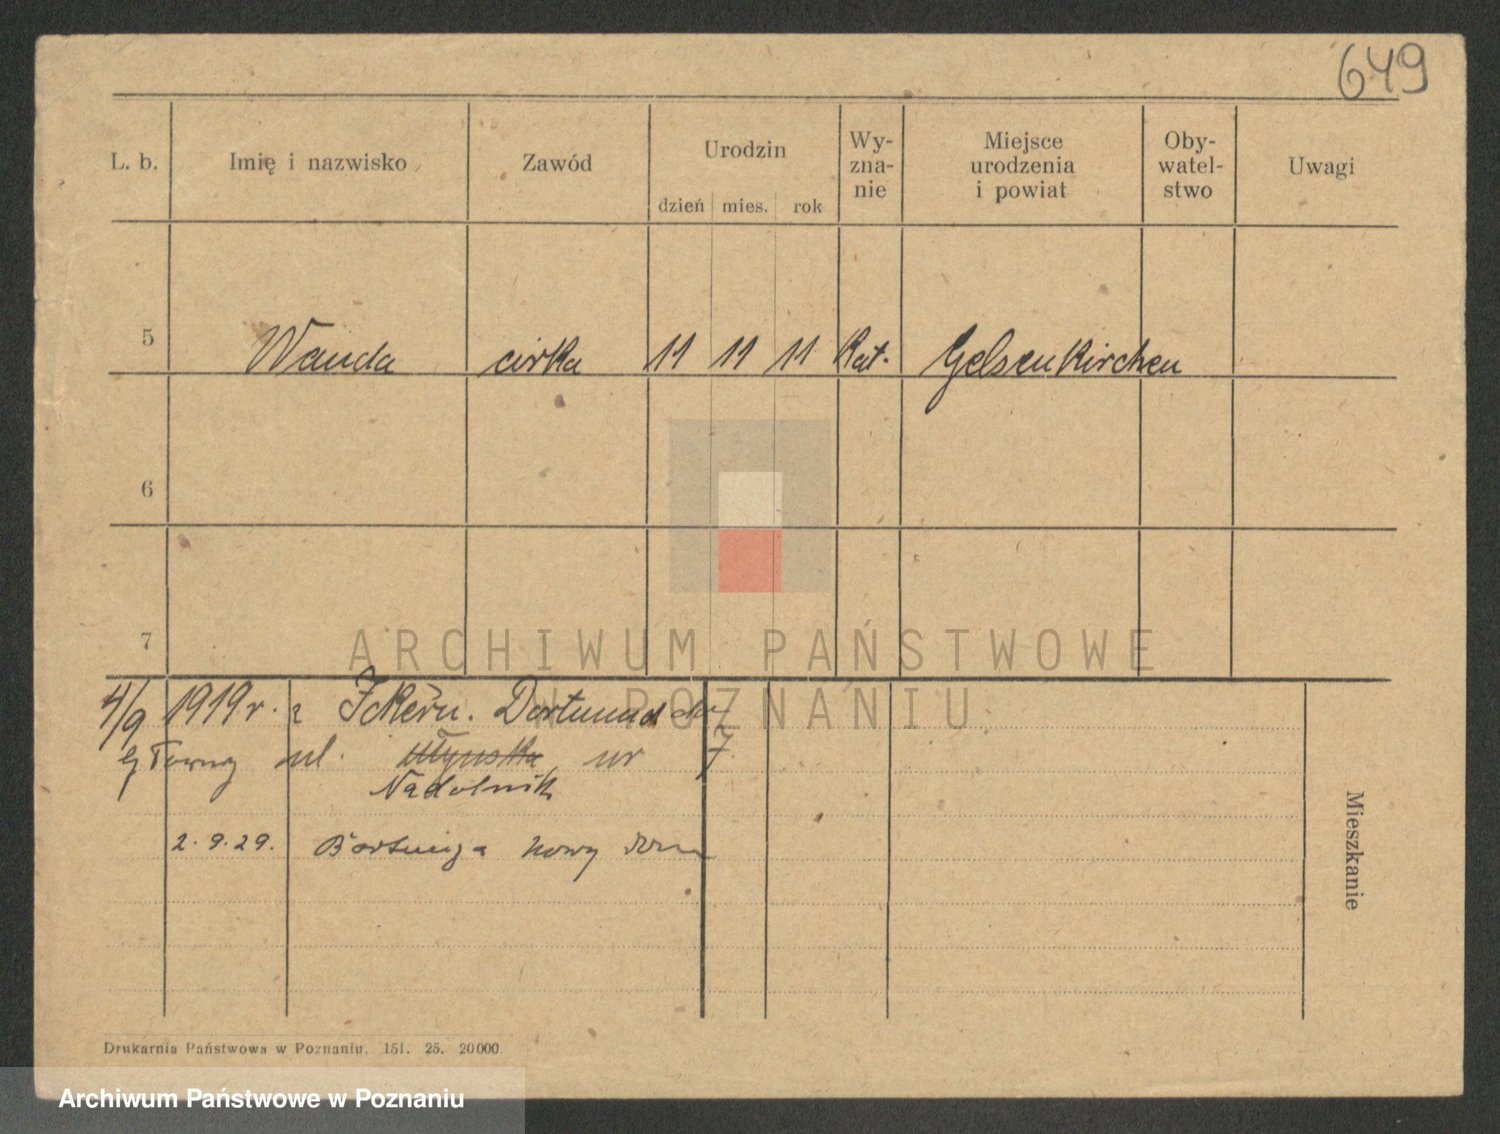 649
L. b. Imię i nazwisko Zawód Urodzin Wy-zna-nie Miejsce urodzenia i powiat Oby-watel-stwo Uwagi
dzień mies. rok
5 Wanda córka 11 11 11 kat. Gelsenkirchen
6
7
ARCHIWUM PAŃSTWOWE
W POZNANIU
4/9 1919 r. z Ickern. Dortmund
Główny ul. Młyńska nr 7.
Nadolnik
2.9.29. nowy dom
Mieszkanie
Drukarnia Państwowa w Poznaniu. 151. 25. 20000.
Archiwum Państwowe w Poznaniu